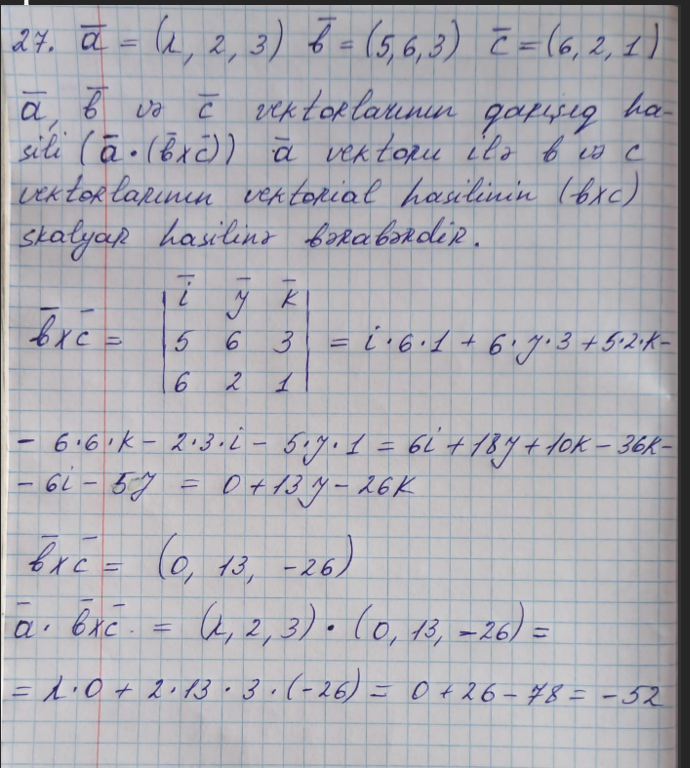 27. a̅ = (λ, 2, 3) b̅ = (5, 6, 3) c̅ = (6, 2, 1)
a̅, b̅ və c̅ vektorlarının qarışıq ha-
sili (a̅ · (b̅xc̅)) a̅ vektoru ilə b və c
vektorlarının vektorial hasilinin (bxc)
skalyar hasilinə bərabərdir.
i̅ y̅ k̅
b̅xc̅ = 5 6 3 = i·6·1 + 6·y·3 + 5·2·k-
6 2 1
- 6·6·k - 2·3·i - 5·y·1 = 6i + 18y + 10k - 36k-
- 6i - 5y = 0 + 13y - 26k
b̅xc̅ = (0, 13, -26)
a̅ · b̅xc̅ = (λ, 2, 3) · (0, 13, -26) =
= λ·0 + 2·13 · 3·(-26) = 0 + 26 - 78 = -52